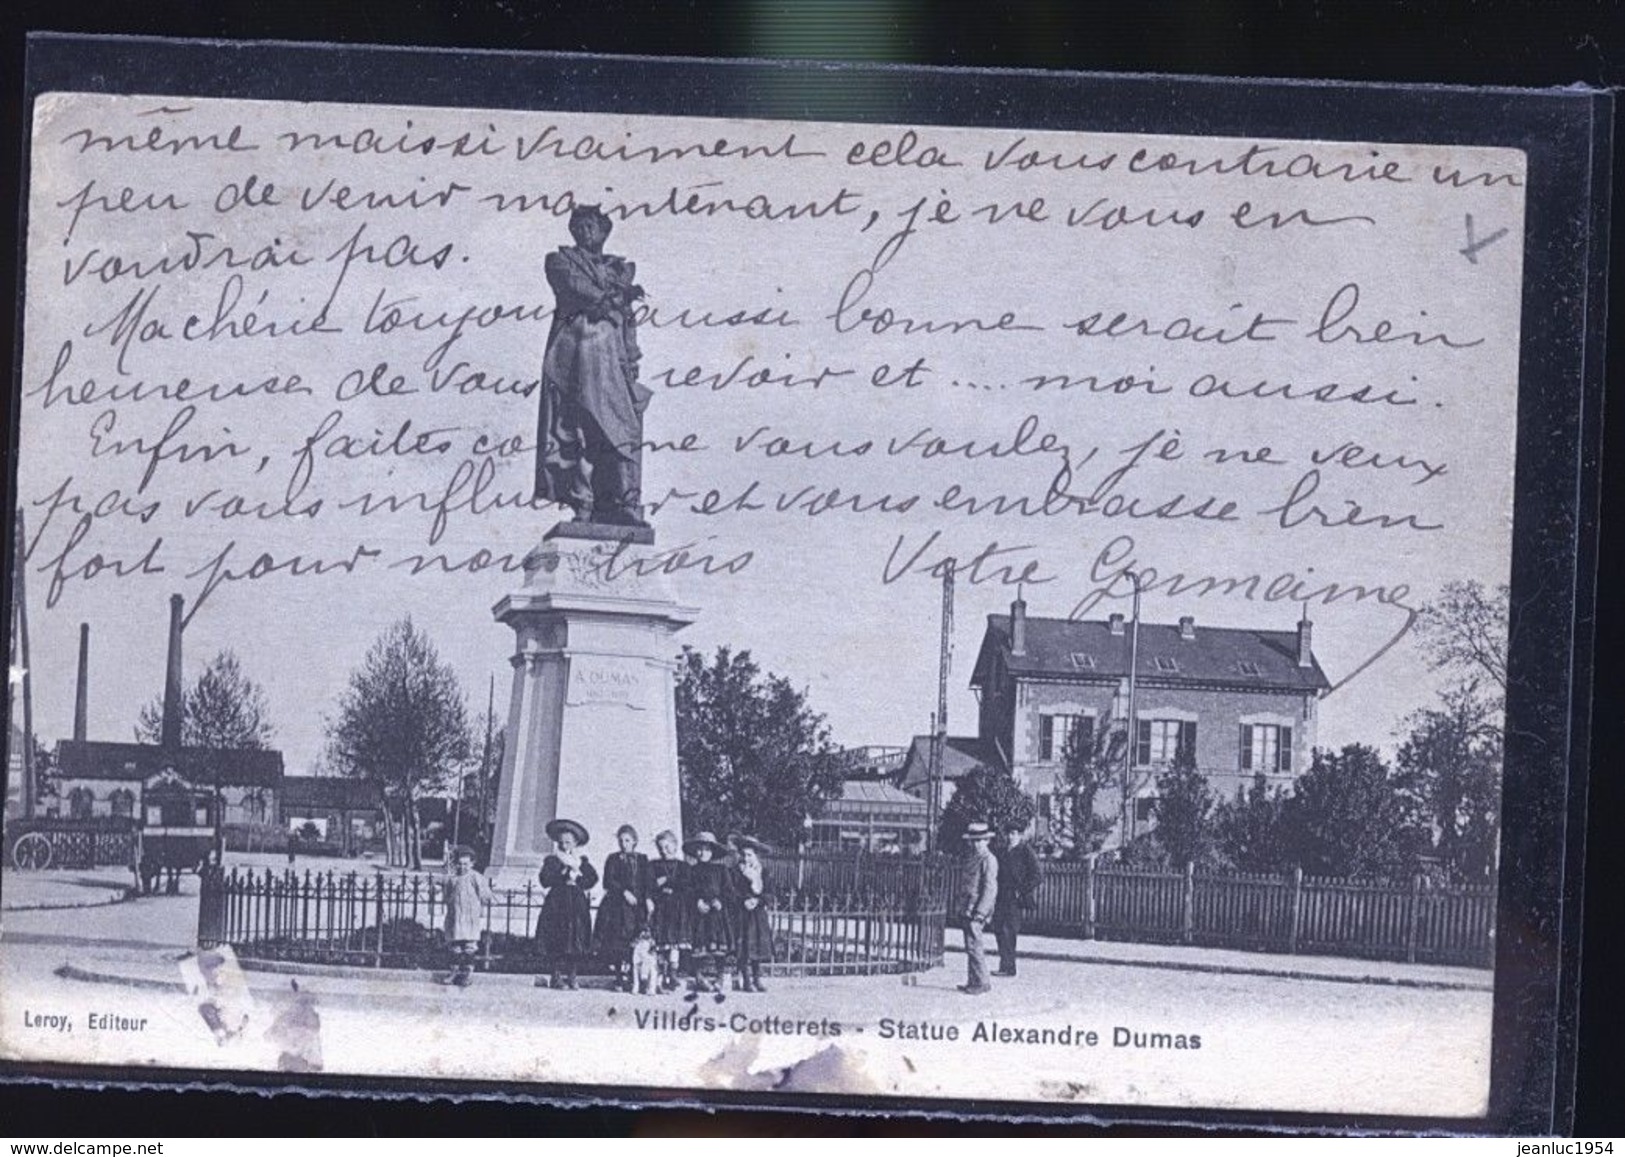 même mais si vraiment cela vous contrarie un
peu de venir maintenant, je ne vous en
voudrai pas.
Ma chérie toujours aussi bonne serait bien
heureuse de vous revoir et .... moi aussi.
Enfin, faites comme vous voulez, je ne veux
pas vous influencer et vous embrasse bien
fort pour nous trois Votre Germaine
A. DUMAS
Leroy, Editeur
Villers-Cotterets - Statue Alexandre Dumas
delcampe.net
jeanluc1954